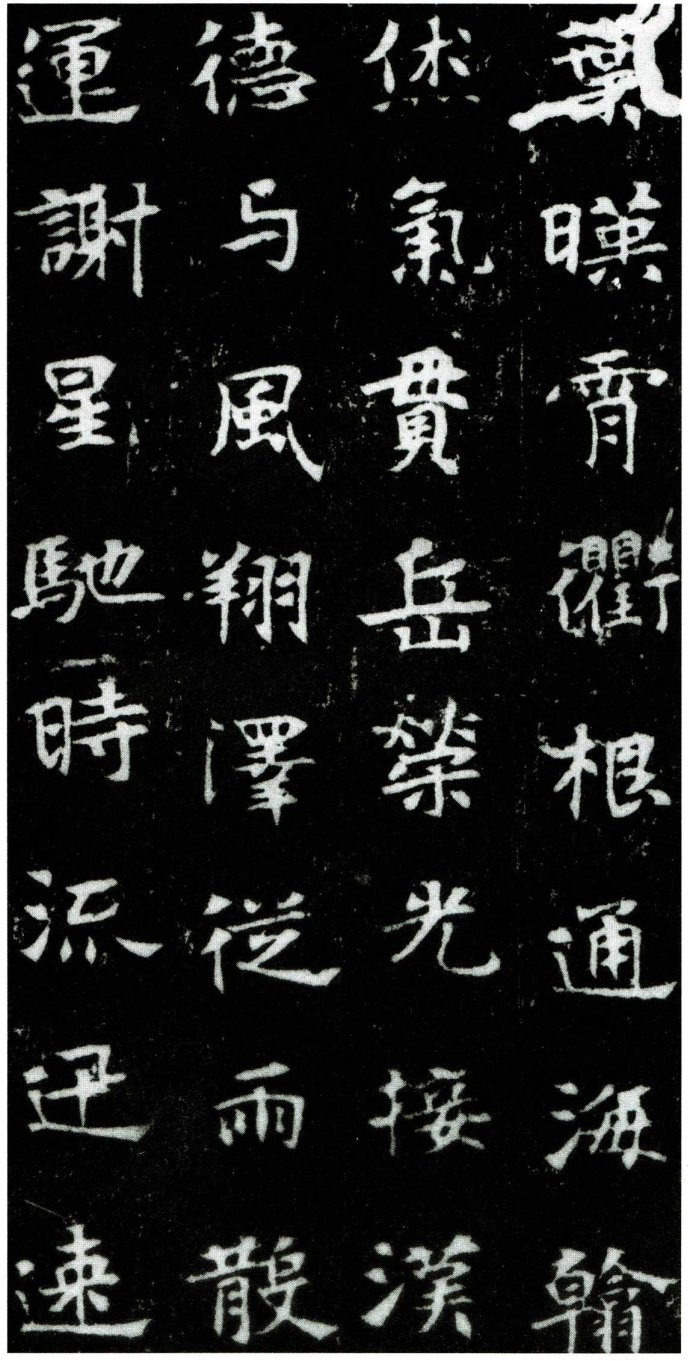 葉暎霄衢根通海翰
烋氣貫岳榮光接漢
德与風翔澤従雨散
運謝星馳時流迅速